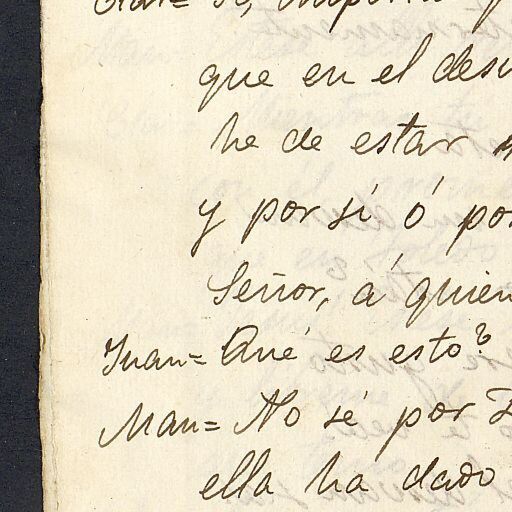 que en el
he de estar
y por sí ó
Señor, á quien
Juan= Qué es esto?
Man= No sé por
ella ha dado